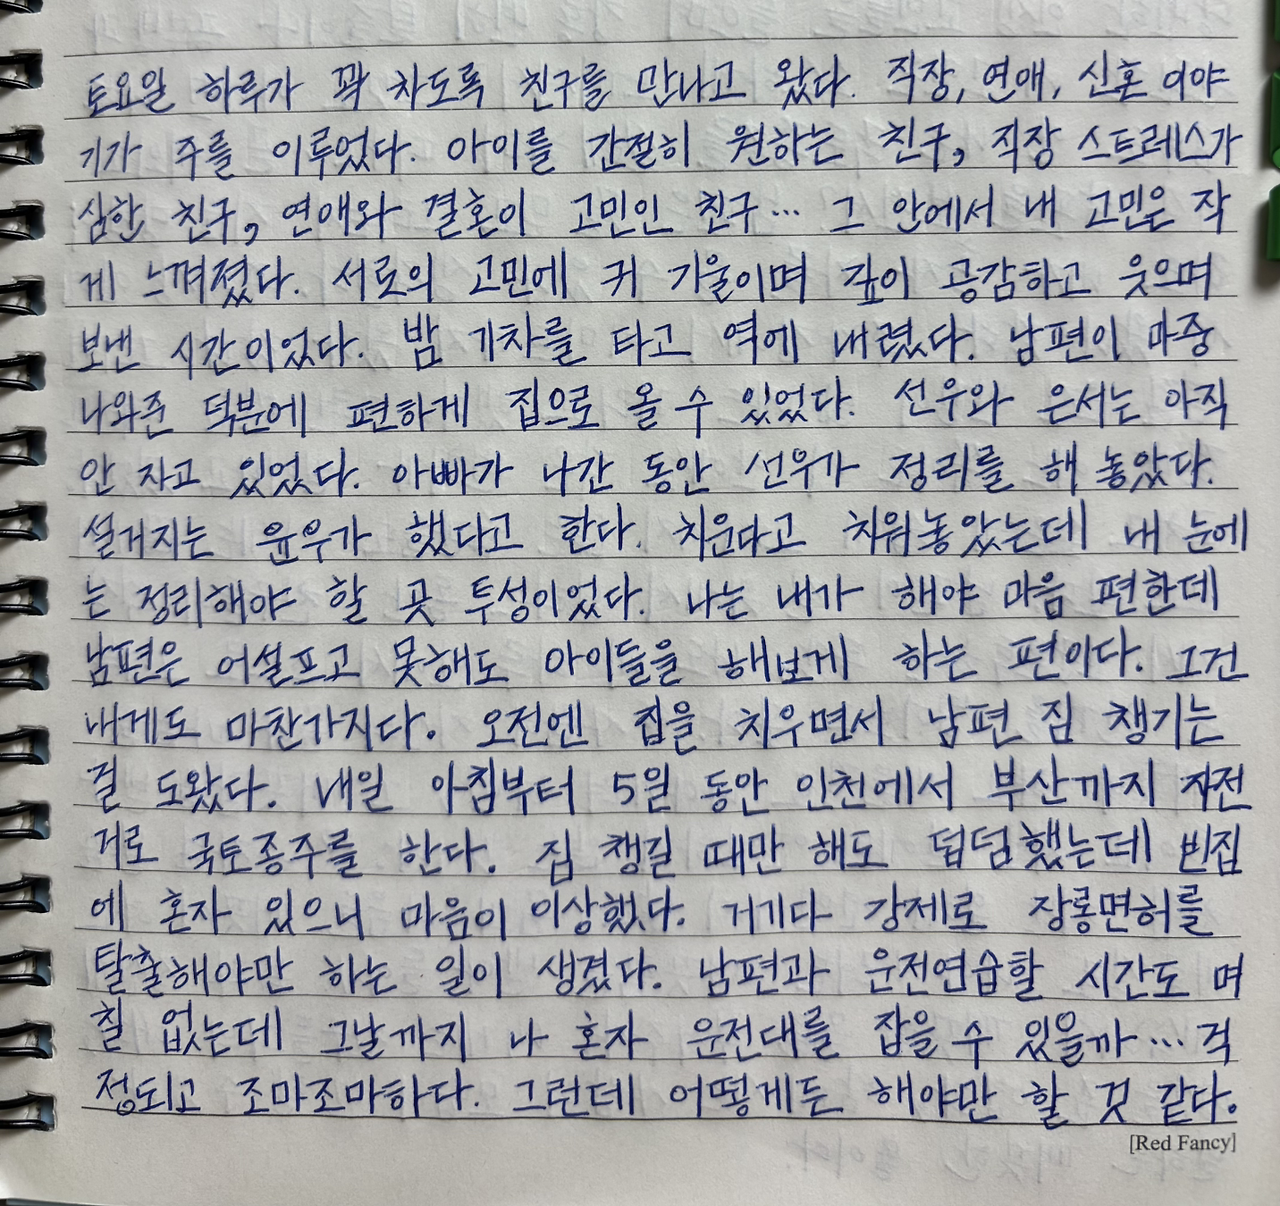 토요일 하루가 꽉 차도록 친구를 만나고 왔다. 직장, 연애, 신혼 이야
기가 주를 이루었다. 아이를 간절히 원하는 친구, 직장 스트레스가
심한 친구, 연애와 결혼이 고민인 친구… 그 안에서 내 고민은 작
게 느껴졌다. 서로의 고민에 귀 기울이며 깊이 공감하고 웃으며
보낸 시간이었다. 밤 기차를 타고 역에 내렸다. 남편이 마중
나와준 덕분에 편하게 집으로 올 수 있었다. 선우와 은서는 아직
안 자고 있었다. 아빠가 나간 동안 선우가 정리를 해 놓았다.
설거지는 윤우가 했다고 한다. 치운다고 치워놓았는데 내 눈에
는 정리해야 할 곳 투성이었다. 나는 내가 해야 마음 편한데
남편은 어설프고 못해도 아이들을 해보게 하는 편이다. 그건
내게도 마찬가지다. 오전엔 집을 치우면서 남편 짐 챙기는
걸 도왔다. 내일 아침부터 5일 동안 인천에서 부산까지 자전
거로 국토종주를 한다. 짐 챙길 때만 해도 덤덤했는데 빈집
에 혼자 있으니 마음이 이상했다. 거기다 강제로 장롱면허를
탈출해야만 하는 일이 생겼다. 남편과 운전연습할 시간도 며
칠 없는데 그날까지 나 혼자 운전대를 잡을 수 있을까… 걱
정되고 조마조마하다. 그런데 어떻게든 해야만 할 것 같다.
[Red Fancy]